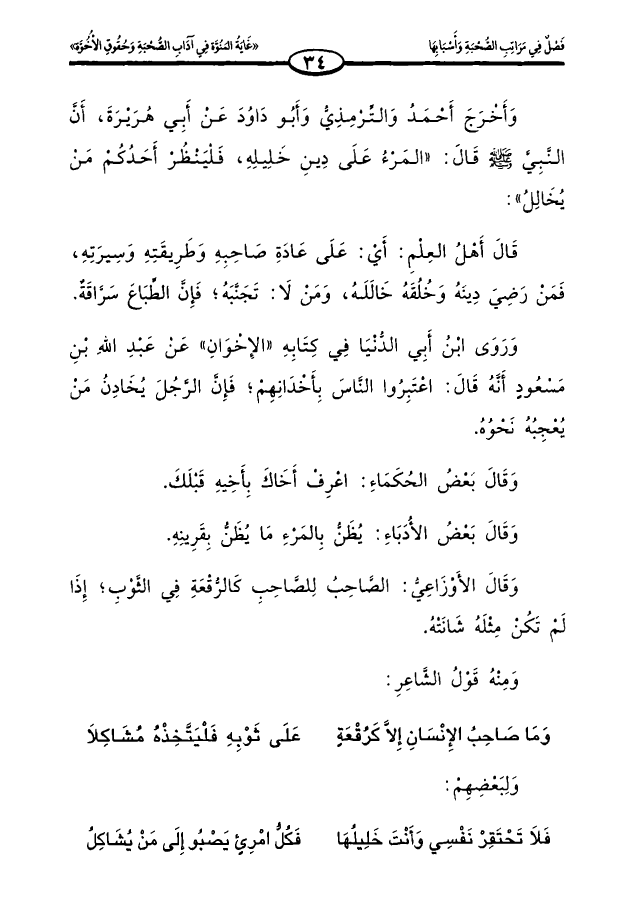 فَصْلٌ فِي مَرَاتِبِ الصُّحْبَةِ وَأَسْبَابِهَا
٣٤
«غَايَةُ المَنُوَّة فِي آدَابِ الصُّحْبَةِ وَحُقُوقِ الْأُخُوَّة»
وَأَخْرَجَ أَحْمَدُ وَالتِّرْمِذِيُّ وَأَبُو دَاوُدَ عَنْ أَبِي هُرَيْرَةَ، أَنَّ
النَّبِيَّ ﷺ قَالَ: «المَرْءُ عَلَى دِينِ خَلِيلِهِ، فَلْيَنْظُرْ أَحَدُكُمْ مَنْ
يُخَالِلُ»:
قَالَ أَهْلُ العِلْمِ: أَيْ: عَلَى عَادَةِ صَاحِبِهِ وَطَرِيقَتِهِ وَسِيرَتِهِ،
فَمَنْ رَضِيَ دِينَهُ وَخُلُقَهُ خَالَلَهُ، وَمَنْ لَا: تَجَنَّبَهُ؛ فَإِنَّ الطِّبَاعَ سَرَّاقَةٌ.
وَرَوَى ابْنُ أَبِي الدُّنْيَا فِي كِتَابِهِ «الإِخْوَانِ» عَنْ عَبْدِ اللهِ بْنِ
مَسْعُودٍ أَنَّهُ قَالَ: اعْتَبِرُوا النَّاسَ بِأَخْدَانِهِمْ؛ فَإِنَّ الرَّجُلَ يُخَادِنُ مَنْ
يُعْجِبُهُ نَحْوُهُ.
وَقَالَ بَعْضُ الحُكَمَاءِ: اعْرِفْ أَخَاكَ بِأَخِيهِ قَبْلَكَ.
وَقَالَ بَعْضُ الأُدَبَاءِ: يُظَنُّ بِالمَرْءِ مَا يُظَنُّ بِقَرِينِهِ.
وَقَالَ الأَوْزَاعِيُّ: الصَّاحِبُ لِلصَّاحِبِ كَالرُّقْعَةِ فِي الثَّوْبِ؛ إِذَا
لَمْ تَكُنْ مِثْلَهُ شَانَتْهُ.
وَمِنْهُ قَوْلُ الشَّاعِرِ:
وَمَا صَاحِبُ الإِنْسَانِ إِلاَّ كَرُقْعَةٍ عَلَى ثَوْبِهِ فَلْيَتَّخِذْهُ مُشَاكِلَا
وَلِبَعْضِهِمْ:
فَلَا تَحْتَقِرْ نَفْسِي وَأَنْتَ خَلِيلُهَا فَكُلُّ امْرِئٍ يَصْبُو إِلَى مَنْ يُشَاكِلُ